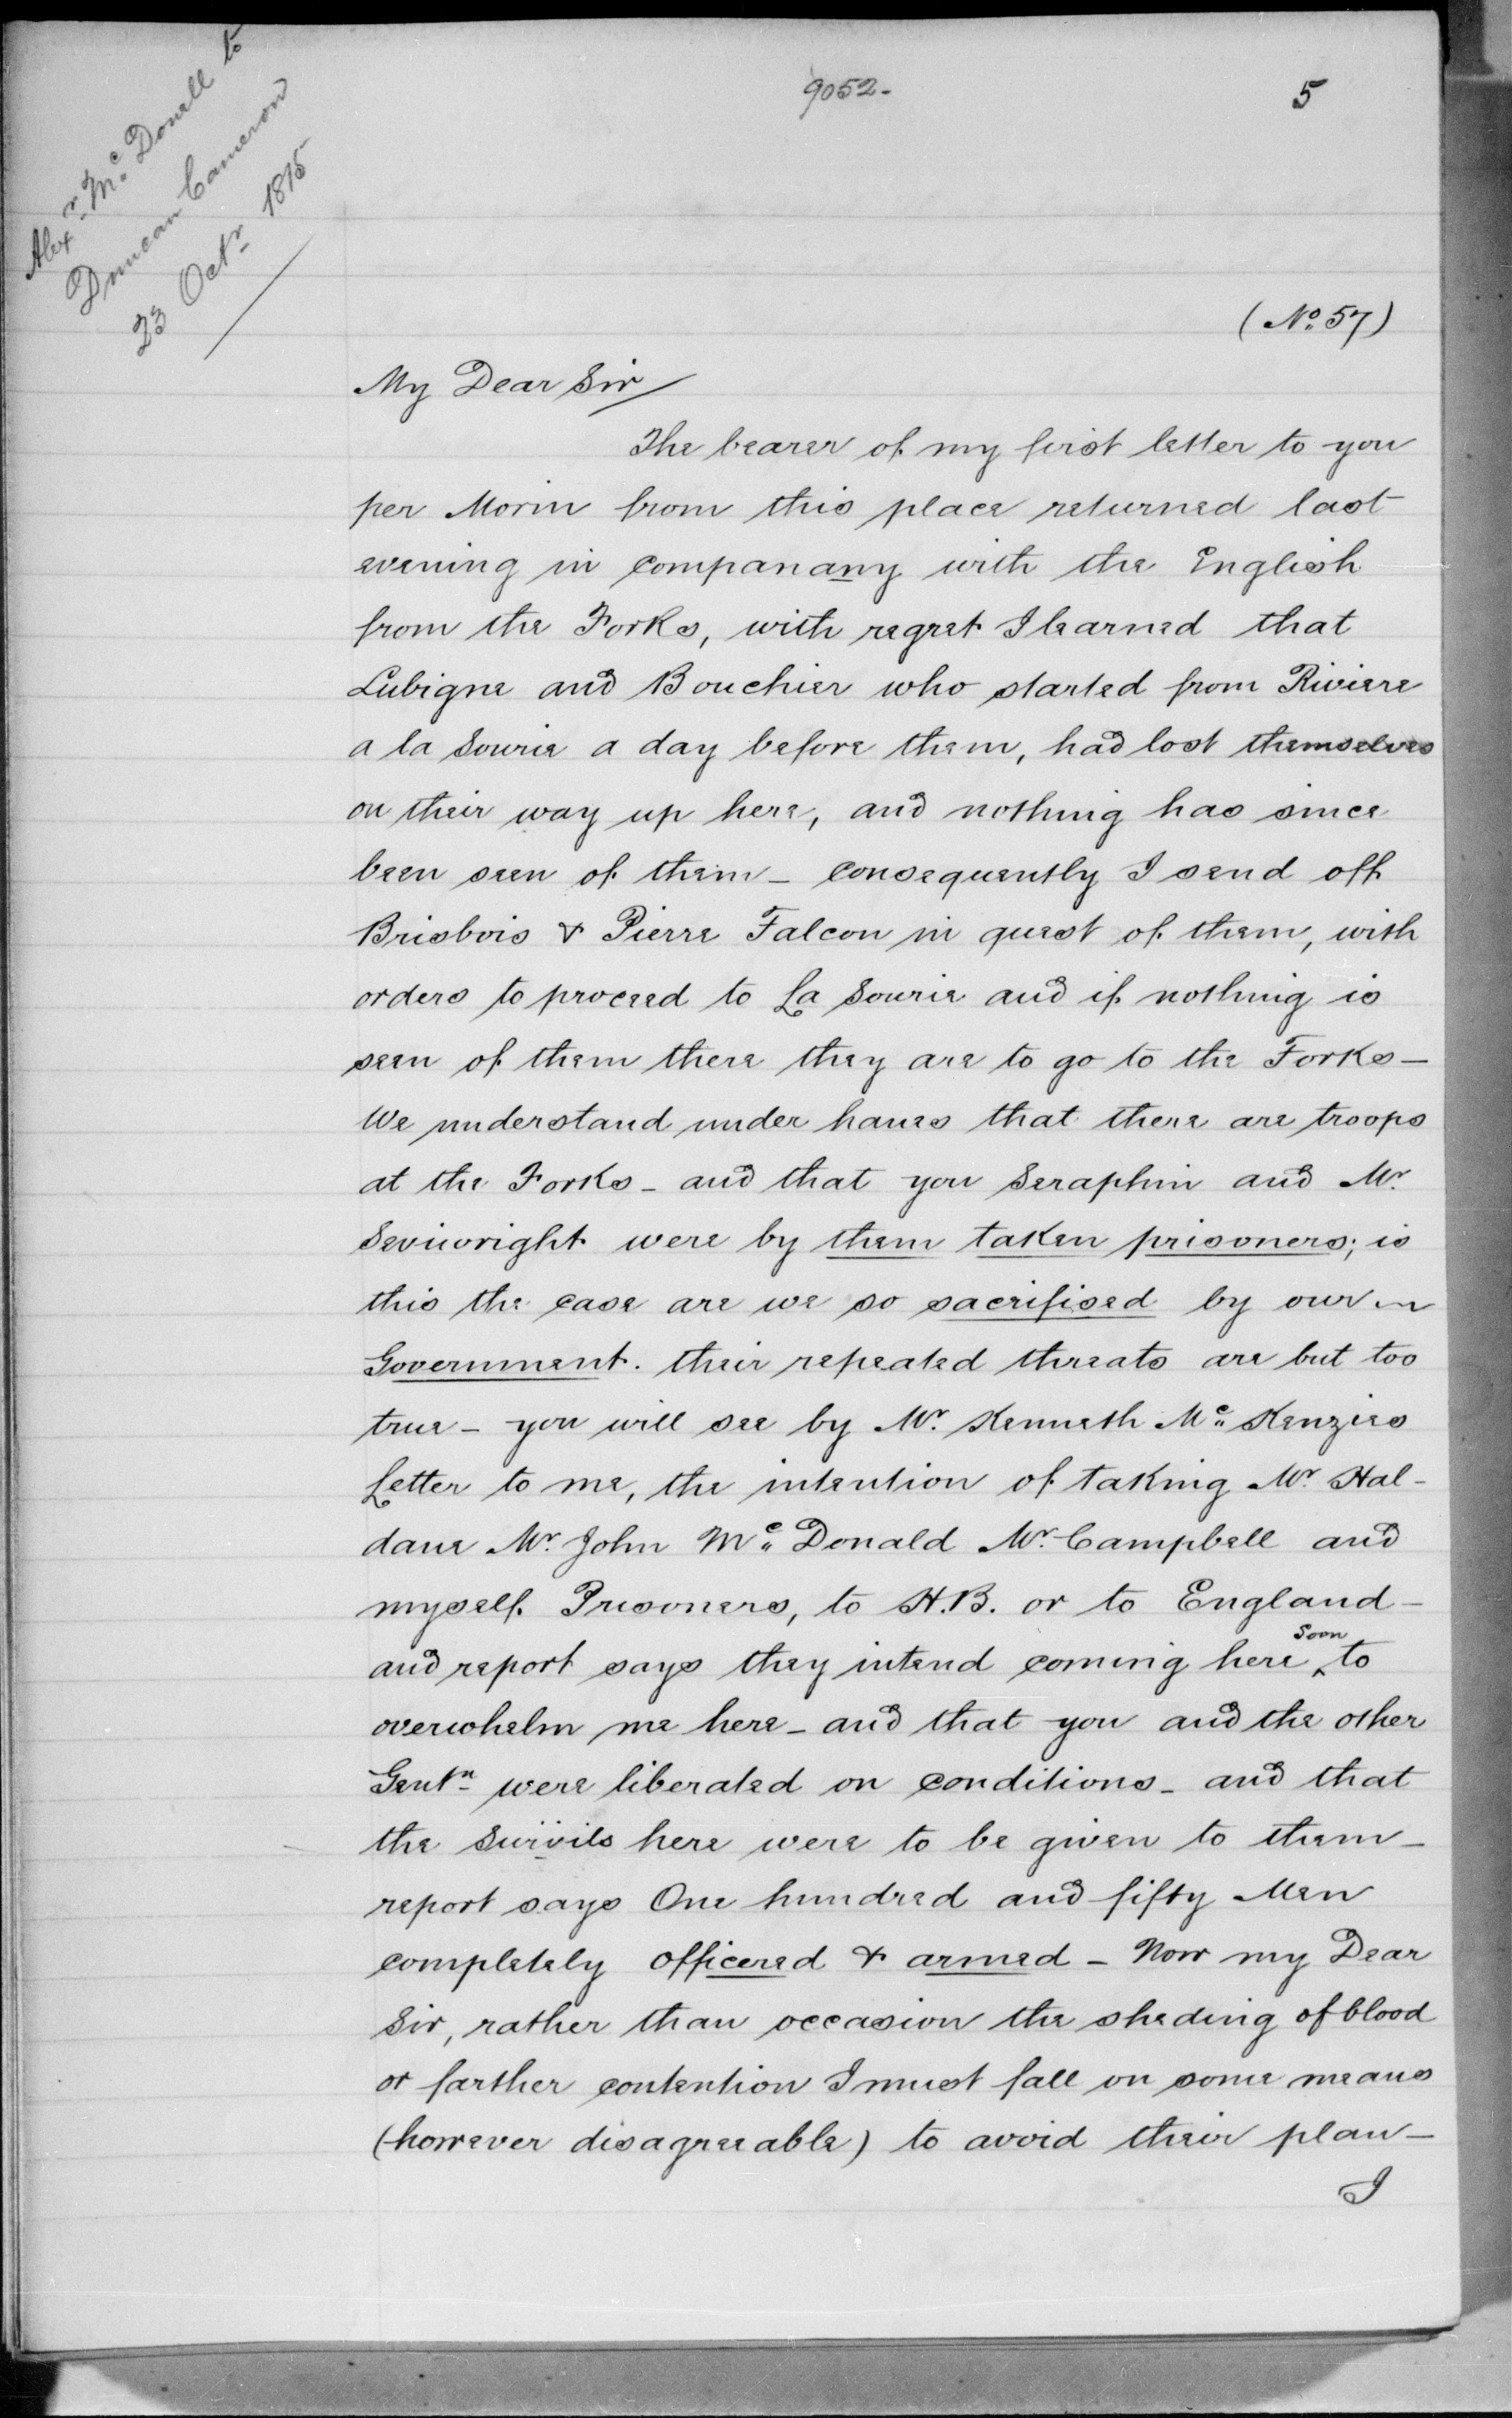 Alexr. Mc. Donell to
Duncan Cameron
23 Octr. 1815
9052-
5
(No. 57)
My Dear Sir
The bearer of my first letter to you
per Morin from this place returned last
evening in companany with the English
from the Forks, with regret I learned that
Lubigne and Bouchier who started from Riviere
a la Sourie a day before them, had lost themselves
on their way up here, and nothing has since
been seen of them - consequently I send off
Brisbois & Pierre Falcon in quest of them, with
orders to proceed to La Sourie and if nothing is
seen of them there they are to go to the Forks -
We understand under hanes that there are troops
at the Forks - and that you Seraphin and Mr.
Seviwright were by them taken prisoners; is
this the case are we so sacrifised by our
Government. their repeated threats are but too
true - you will see by Mr. Kenneth Mc. Kenzies
Letter to me, the intention of taking Mr. Hal-
dane Mr. John Mc. Donald Mr. Campbell and
myself Prisoners, to H.B. or to England -
and report says they intend coming here soon to
overwhelm me here - and that you and the other
Gentn. were liberated on conditions - and that
the Swivils here were to be given to them -
report says One hundred and fifty Men
completely officered & armed - Now my Dear
Sir, rather than occasion the sheding of blood
or farther contention I must fall on some means
(however disagreeable) to avoid their plan -
I